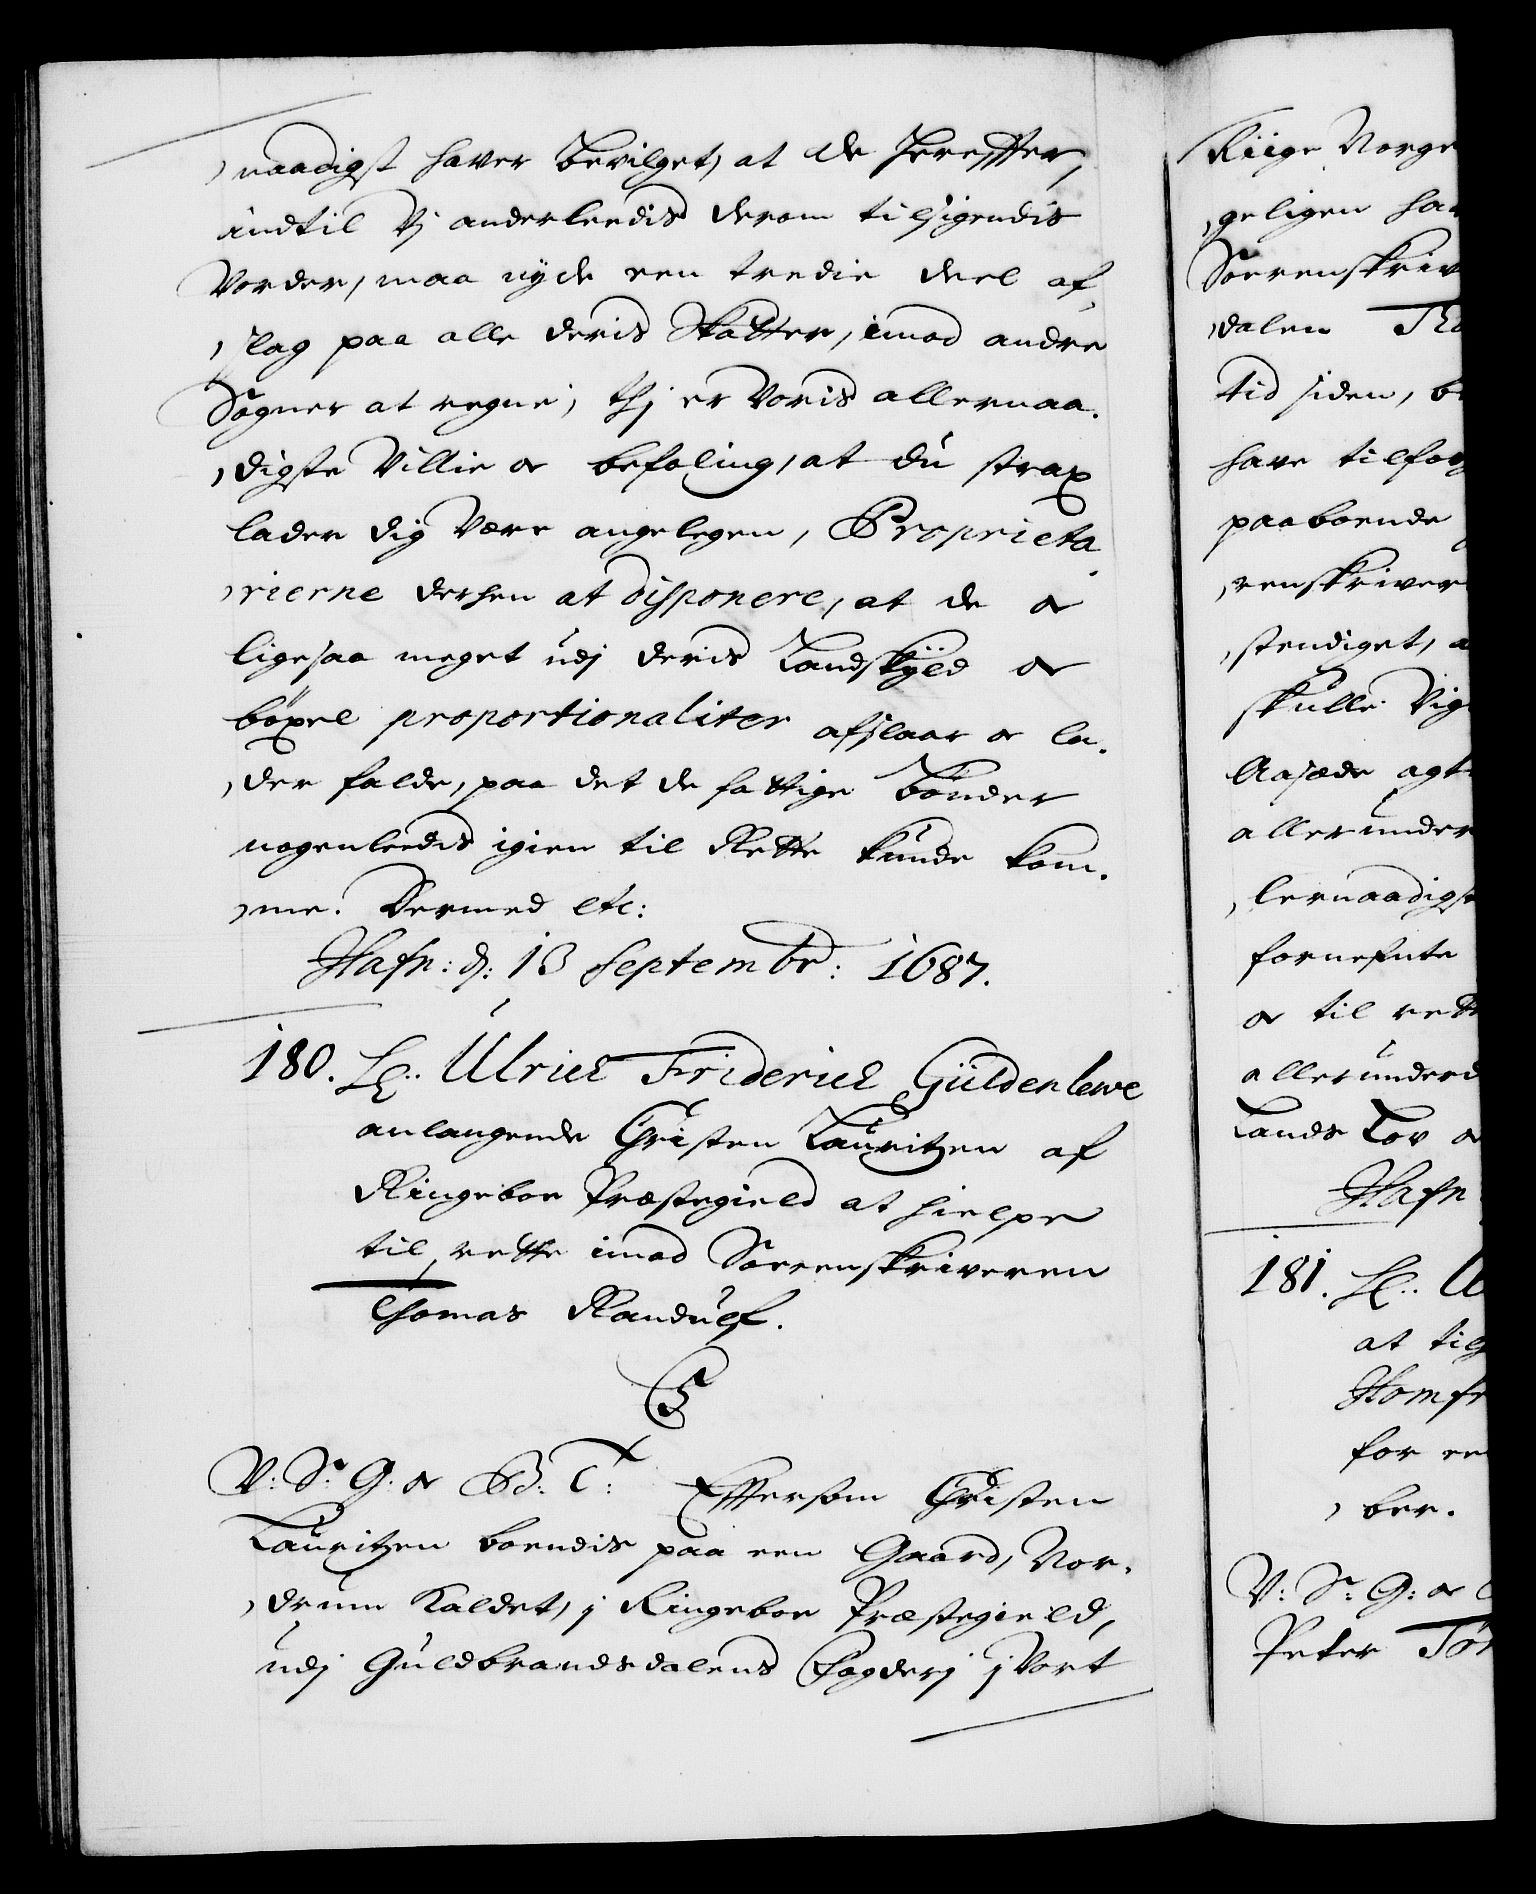 naadigst hafver bevilget, at de hereffter,
indtil Vj anderleedis derom tilsigendis
Vorder, maa nyde een tredie deel af-
slag paa alle deris Skatter, imod andre
Sogner at regne; thj er Voris allernaa-
digste Villie oc befaling, at du strax
lader dig være angelegen, Proprieta-
rierne derhen at disponere, at de oc
ligesaa meget udj deris Landskyld oc
böxel proportionaliter afslaar oc la-
der falde, paa det de fattige Bönder
nogenleedis igien til Rette kunde kom-
me. Dermed etc:
Hafn: d: 13 Septembr: 1687.
180. Ulrich Friderich Güldenlewe
anlangende Christen Lauritzen af
Ringeboe Præstegield at hielpe
til rette imod Sorenskriveren
Thomas Randulf.
C5
V: S: G: oc B: T: Effersom Christen
Lauritzen boendis paa een Gaard, Vor-
drum Kaldet, j Ringeboe Præstegield,
udj Guldbrandsdalens Fogderj j Vort
Riige Norge
geligen haf
Sorenskriv
dalen Tho
tid siden, b
hafve tilfor
paaboende
renskriver
stendiget, a
skulle Vig
Aasæde agt
allerunder
lernaadigst
fornefnte
oc til rett
allerunderd
Lands Lov oc
Hafn
181. U
at til
Homfr
for ee
ber.
V: S: G: oc
Peter Tör